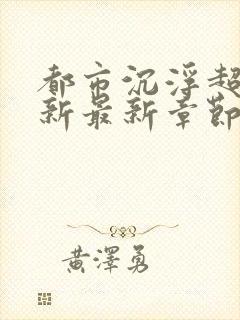 都市沉浮超
新最新章節
黃澤勇